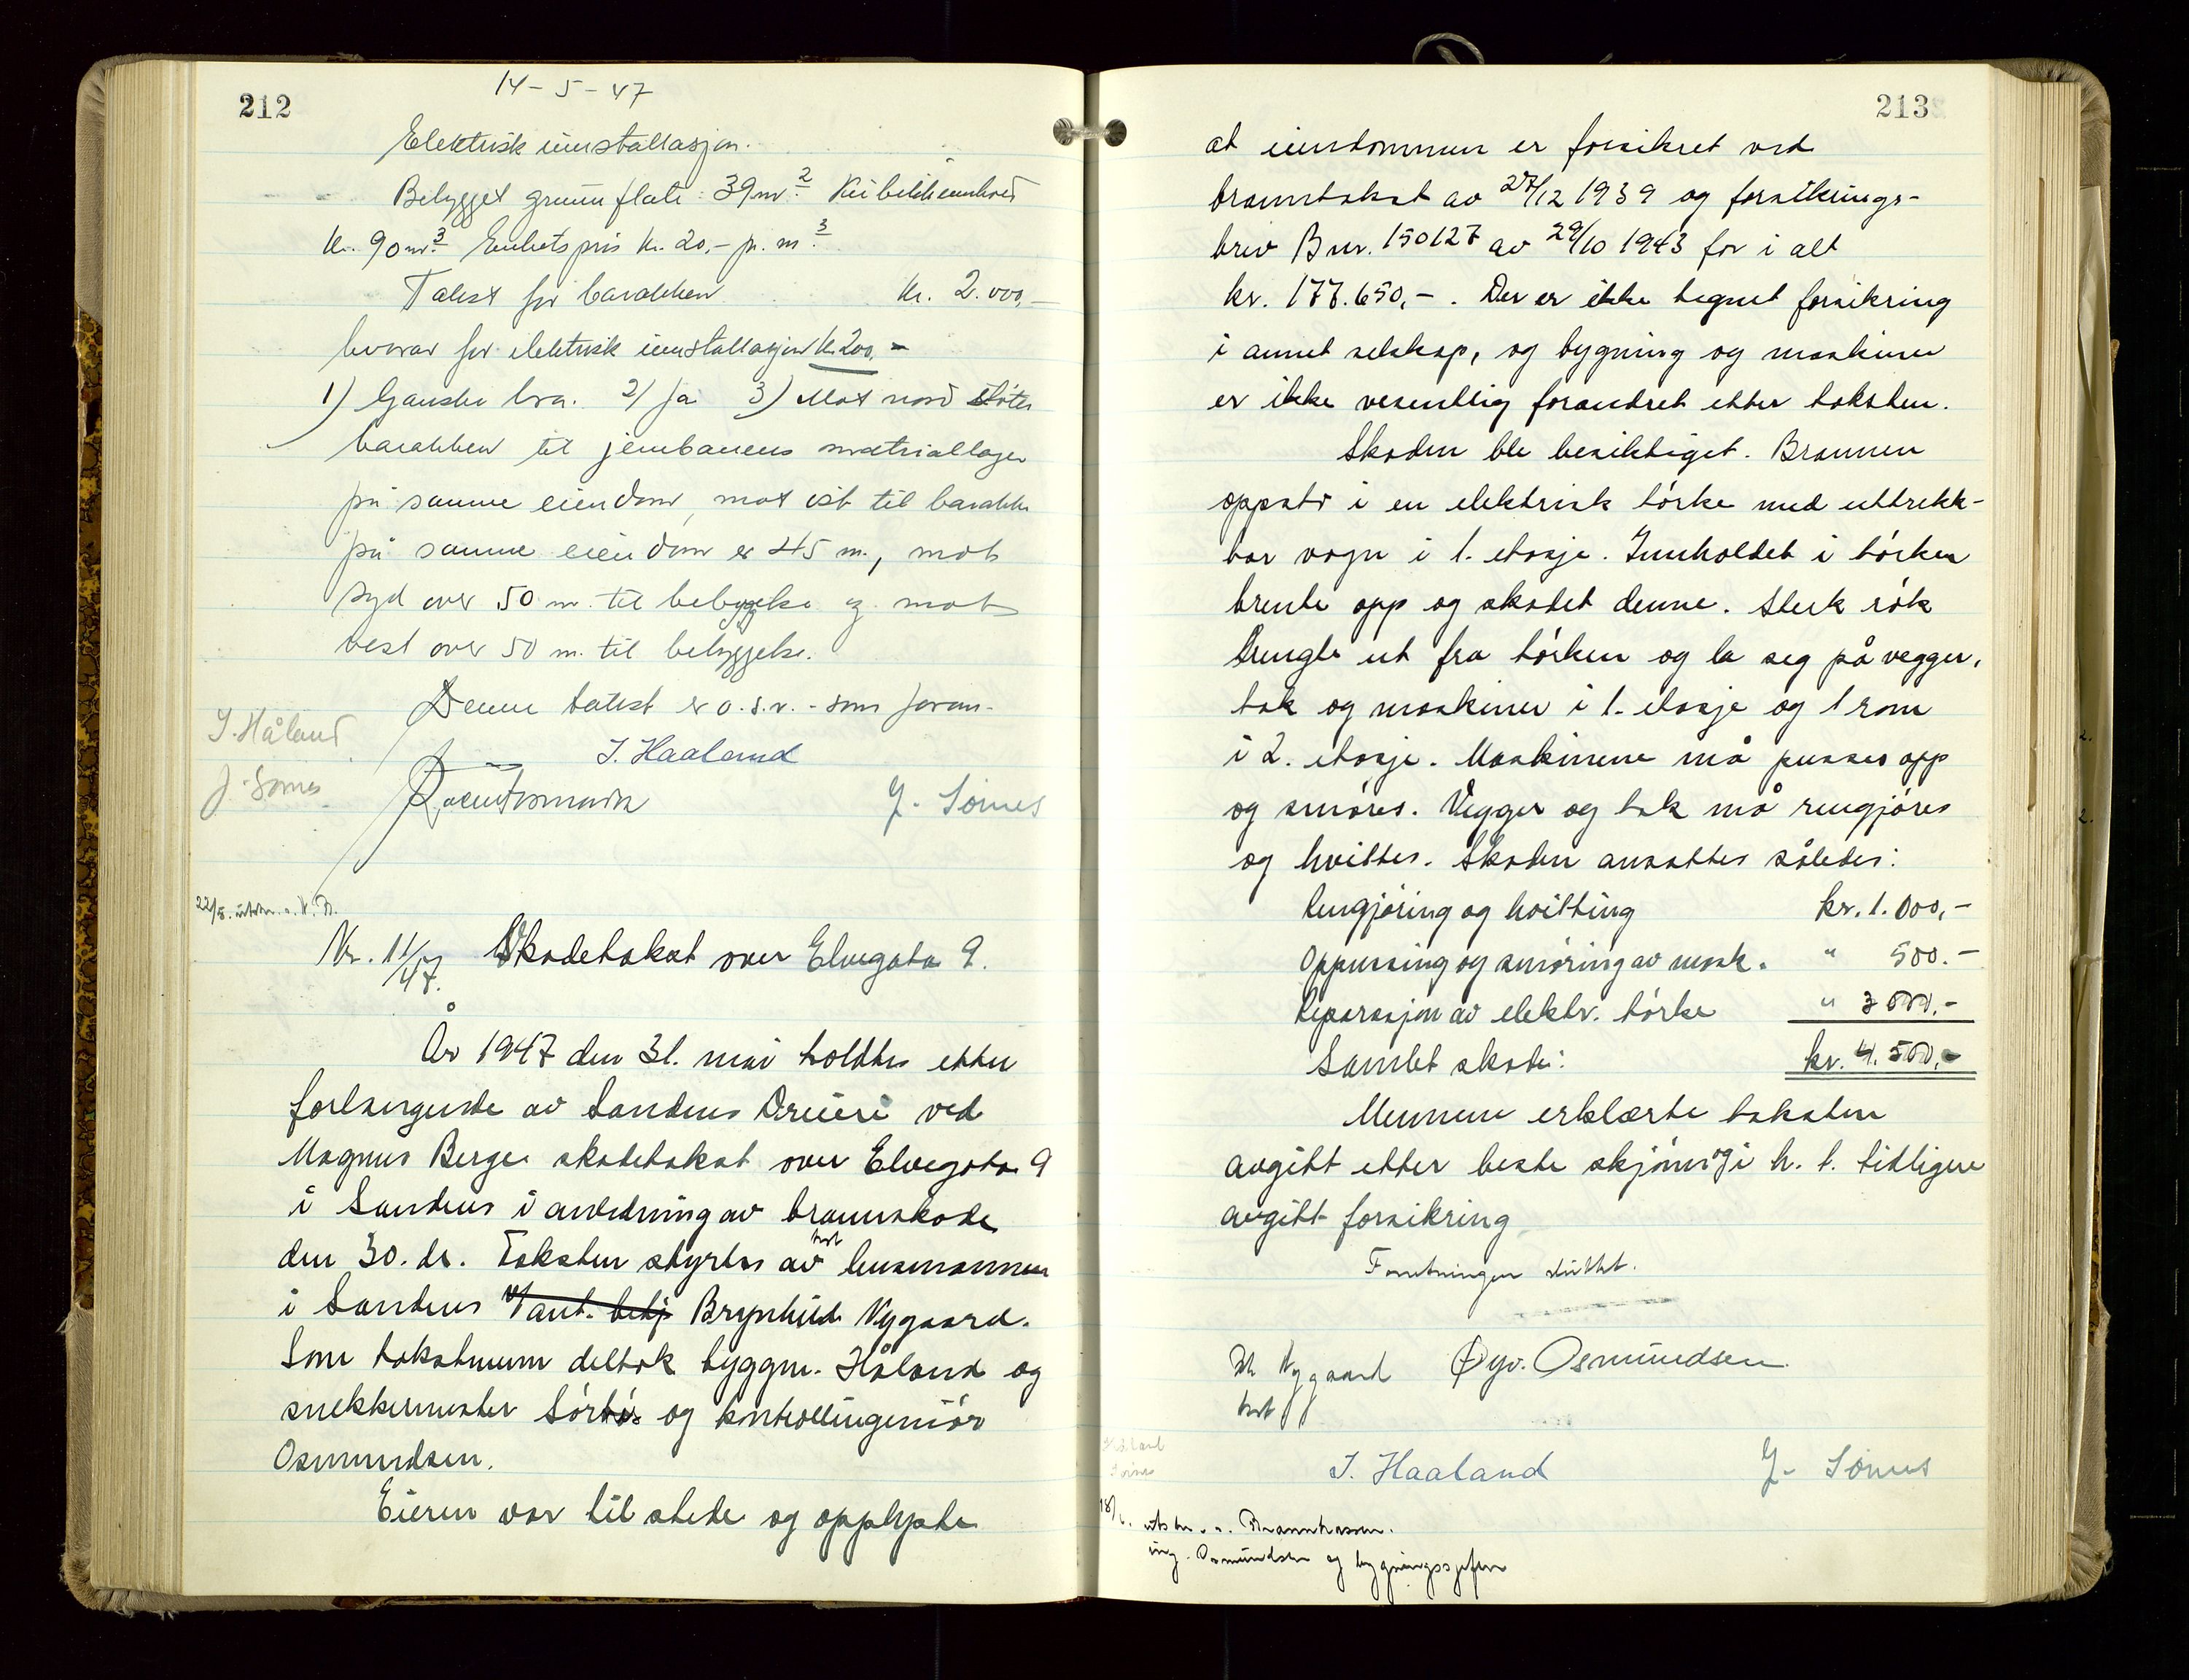 212
14-5-47
Elektrisk innstallasjon.
Bebygget grunnflate: 39 m² Kubikkinnhold
Kr. 90 m³ Enhetspris kr. 20,- pr. m³
Takst for barakken kr. 2.000,-
hvorav for elektrisk innstallasjon kr. 200,-
1) Ganske bra. 2) Ja 3) Mot nord støter
barakken til jernbanens matriallager
på samme eiendom, mot öst til barakke
på samme eiendom er 45 m., mot
syd over 50 m. til bebyggelse og mot
vest over 50 m. til bebyggelse.
Denne takst er o.s.v. - som foran -
I. Håland
I. Haaland
J. Sörnes
J. Sörnes
22/5. utskr. a. N. B.
Nr. 11/47. Skadetakst over Elvegata 9.
År 1947 den 31. mai holdtes etter
forlangende av Sandnes Drueri ved
Magnus Berge skadetakst over Elvegata 9
i Sandnes i anledning av brannskade
den 30. ds. Taksten styrtes av kst lensmannen
i Sandnes v/ aut. betj Brynhild Nygaard.
Som takstmenn deltok byggm. Håland og
snekkermester Sörnes og kontrollingeniör
Osmundsen.
Eieren var til stede og opplyste
213
at eiendommen er forsikret ved
branntakst av 27/12 1939 og forsikrings-
brev B nr. 150127 av 29/10 1943 for i alt
kr. 177.650,-. Der er ikke tegnet forsikring
i annet selskap, og bygning og maskiner
er ikke vesentlig forandret etter taksten.
Skaden ble besiktiget. Brannen
oppsto i en elektrisk törke med uttrekk-
bar vogn i 1. etasje. Innholdet i törken
brente opp og skadet denne. Sterk rök
trengte ut fra törken og la seg på vegger,
tak og maskiner i 1. etasje og 1 rom
i 2. etasje. Maskinene må pusses opp
og smöres. Vegger og tak må rengjöres
og hvittes. Skaden ansattes således:
Rengjöring og hvitting kr. 1.000,-
Oppussing og smöring av mask. " 500.-
Reparasjon av elektr. törke " 3000.-
Samlet skade: kr. 4.500,-
Mennene erklærte taksten
avgitt etter beste skjönn og i h. t. tidligere
avgitt forsikring
Forretningen sluttet.
Br Nygaard Øyv. Osmundsen.
kst
Håland
Sörnes
I. Haaland J. Sörnes
18/6. utskr. a. Brannkassen.
ing. Osmundsen og bygningssjefen